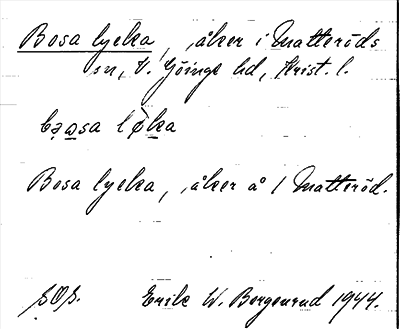 Bosa lycka, åker i Matteröds
sn, V. Göinge hd, Krist. l.
Bosa lycka, åker å 1 Matteröd.
S.O.S. Erik W. Bergenrud 1944.